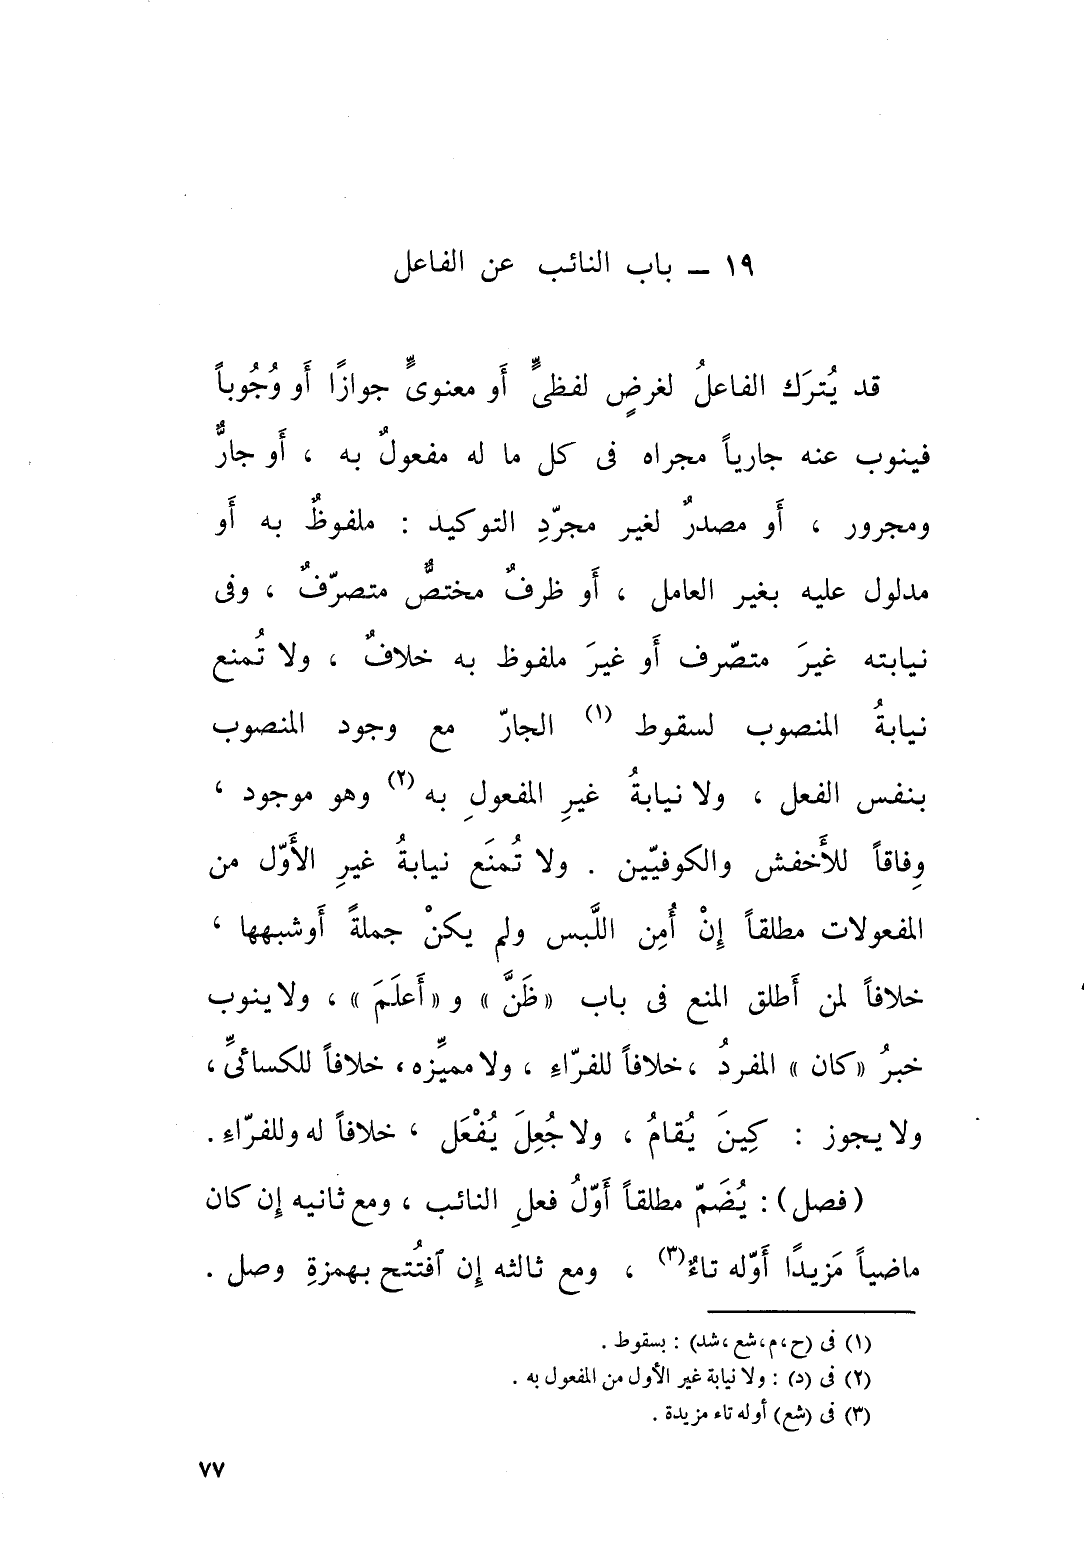 ١٩ ــ باب النائب عن الفاعل
قد يُترَك الفاعلُ لغرضٍ لفظىٍّ أَو معنوىٍّ جوازًا أَو وُجُوباً
فينوب عنه جارياً مجراه فى كل ما له مفعولٌ به ، أَو جارٌّ
ومجرور ، أَو مصدرٌ لغير مجرّدِ التوكيد : ملفوظٌ به أَو
مدلول عليه بغير العامل ، أَو ظرفٌ مختصٌّ متصرّفٌ ، وفى
نيابته غيرَ متصّرف أَو غيرَ ملفوظ به خلافٌ ، ولا تُمنع
نيابةُ المنصوب لسقوط (١) الجارّ مع وجود المنصوب
بنفس الفعل ، ولا نيابةُ غيرِ المفعولِ به (٢) وهو موجود ،
وِفاقاً للأَخفش والكوفيّين . ولا تُمنَع نيابةُ غيرِ الأَوّل من
المفعولات مطلقاً إِنْ أُمِن اللَّبس ولم يكنْ جملةً أَوشبهها ،
خلافاً لمن أَطلق المنع فى باب «ظَنَّ» و «أَعلَمَ» ، ولا ينوب
خبرُ «كان» المفردُ ، خلافاً للفرّاءِ ، ولا مميِّزه ، خلافاً للكسائىِّ ،
ولا يجوز : كِينَ يُقامُ ، ولا جُعِلَ يُفْعَل ، خلافاً له وللفرّاءِ .
(فصل) : يُضَمّ مطلقاً أَوّلُ فعلِ النائب ، ومع ثانيه إِن كان
ماضياً مَزيدًا أَوّله تاءٌ (٣) ، ومع ثالثه إِن ٱفتُتح بهمزةِ وصل .
(١) فى (ح،م،شع،شد) : بسقوط .
(٢) فى (د) : ولا نيابة غير الأول من المفعول به .
(٣) فى (شع) أوله تاء مزيدة .
٧٧